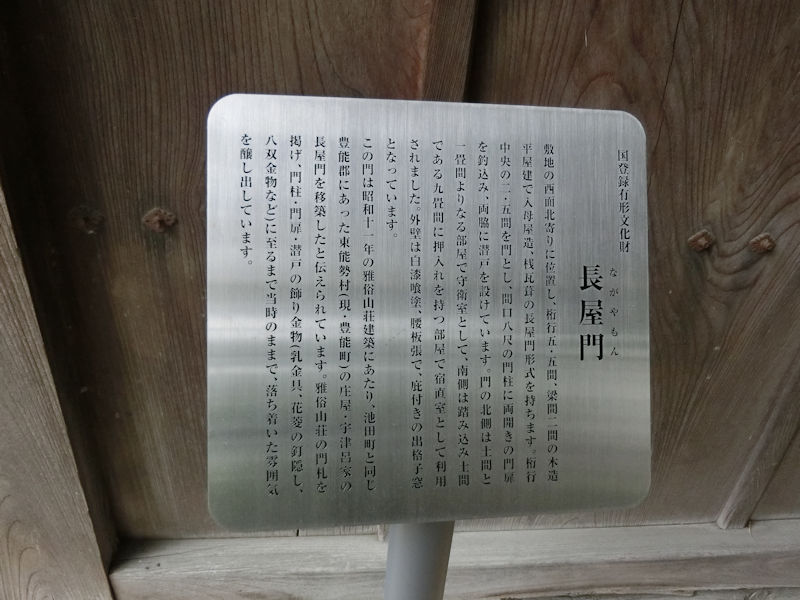 国登録有形文化財
ながやもん
長屋門
敷地の西面北寄りに位置し、桁行五・五間、梁間二間の木造
平屋建で入母屋造、桟瓦葺の長屋門形式を持ちます。桁行
中央の二・五間を門とし、間口八尺の門柱に両開きの門扉
を釣込み、両脇に潜戸を設けています。門の北側は土間と
一畳間よりなる部屋で守衛室として、南側は踏み込み土間
である九畳間に押入れを持つ部屋で宿直室として利用
されました。外壁は白漆喰塗、腰板張で、庇付きの出格子窓
となっています。
この門は昭和十一年の雅俗山荘建築にあたり、池田町と同じ
豊能郡にあった東能勢村(現・豊能町)の庄屋・宇津呂家の
長屋門を移築したと伝えられています。雅俗山荘の門札を
掲げ、門柱・門扉・潜戸の飾り金物(乳金具、花菱の釘隠し、
八双金物など)に至るまで当時のままで、落ち着いた雰囲気
を醸し出しています。